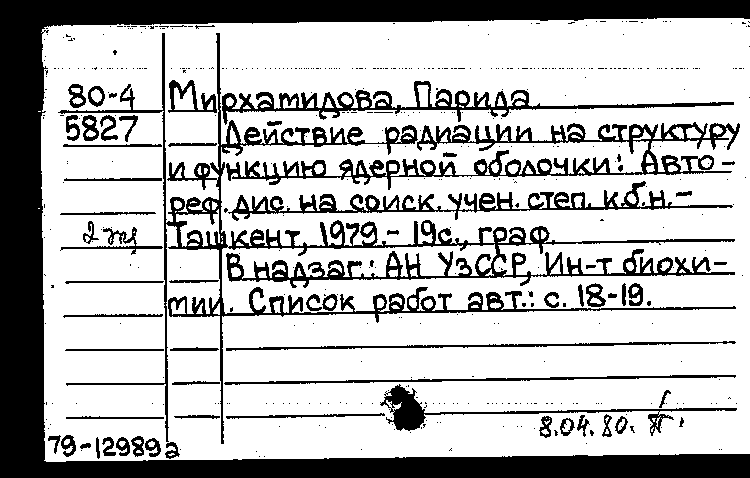 80-4 Мирхамидова, Парида.
5827 Действие радиации на структуру
и функцию ядерной оболочки: Авто-
реф. дис. на соиск. учен. степ. к.б.н.-
Ташкент, 1979.- 19с., граф.
В надзаг.: АН УзССР, Ин-т биохи-
мии. Список работ авт.: с. 18-19.
8.04.80.
79-12989а